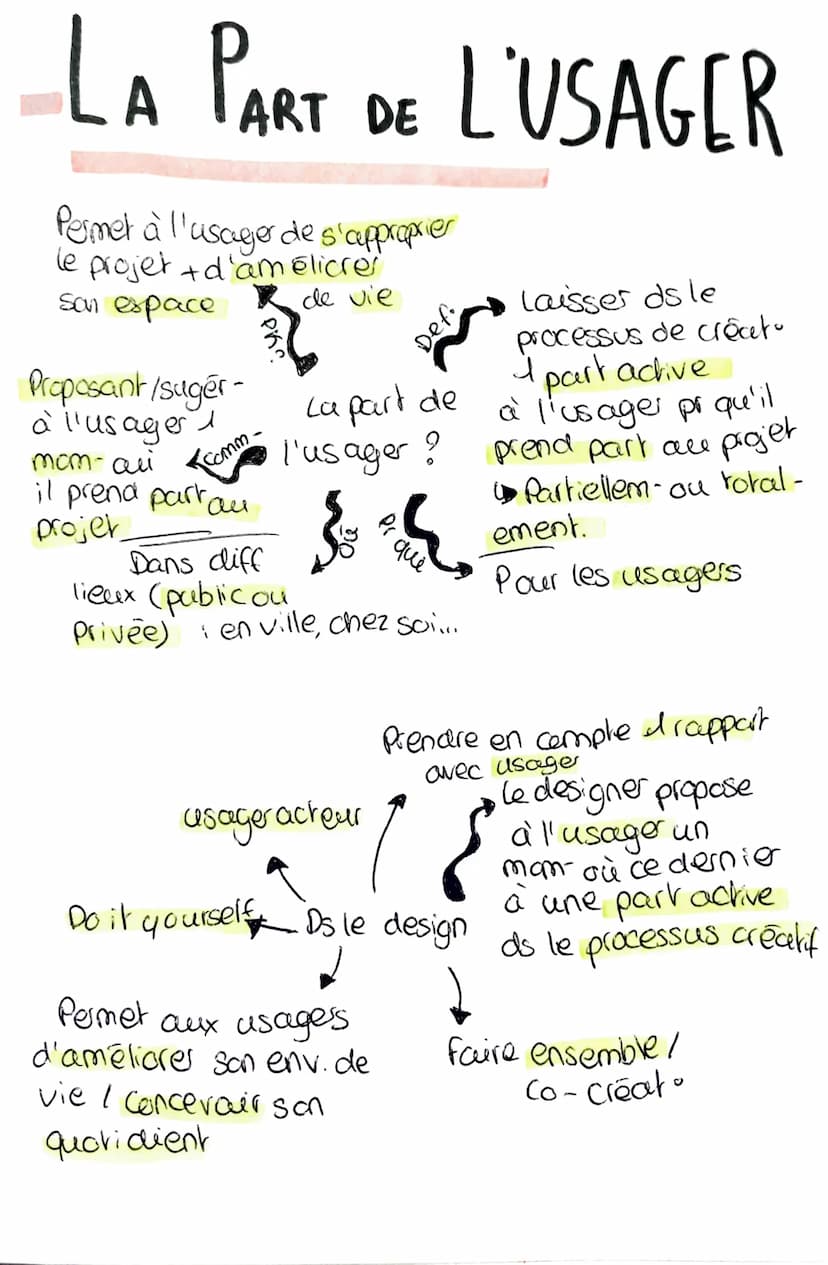 LA PART DE L'USAGER
Permet à l'usager de s'approprier
le projet + d'améliorer
son espace de vie
Def.
Laisser ds le
processus de créat°
1 part active
à l'usager pr qu'il
prend part au projet
↳ Partiellem- ou total-
ement.
Proposant/sugér-
à l'usager 1
mom- où
il prend part au
projet
comm-
La part de
l'usager ?
Où
pr qui
Pour les usagers
Dans diff
lieux (public ou
privée) : en ville, chez soi...
Prendre en compte 1 rapport
avec usager
le designer propose
à l'usager un
mom- où ce dernier
à une part active
ds le processus créatif
usager acteur
Do it yourself
Ds le design
Permet aux usagers
d'améliorer son env. de
vie / concevoir son
quotidient
Faire ensemble /
Co-créat°